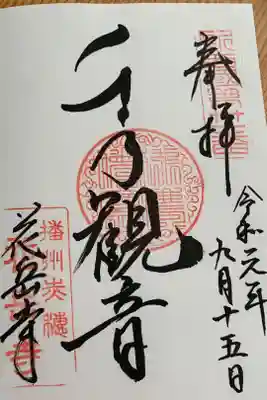 奉拝
令和元年
九月十五日
千手觀音
播州赤穗
花岳寺